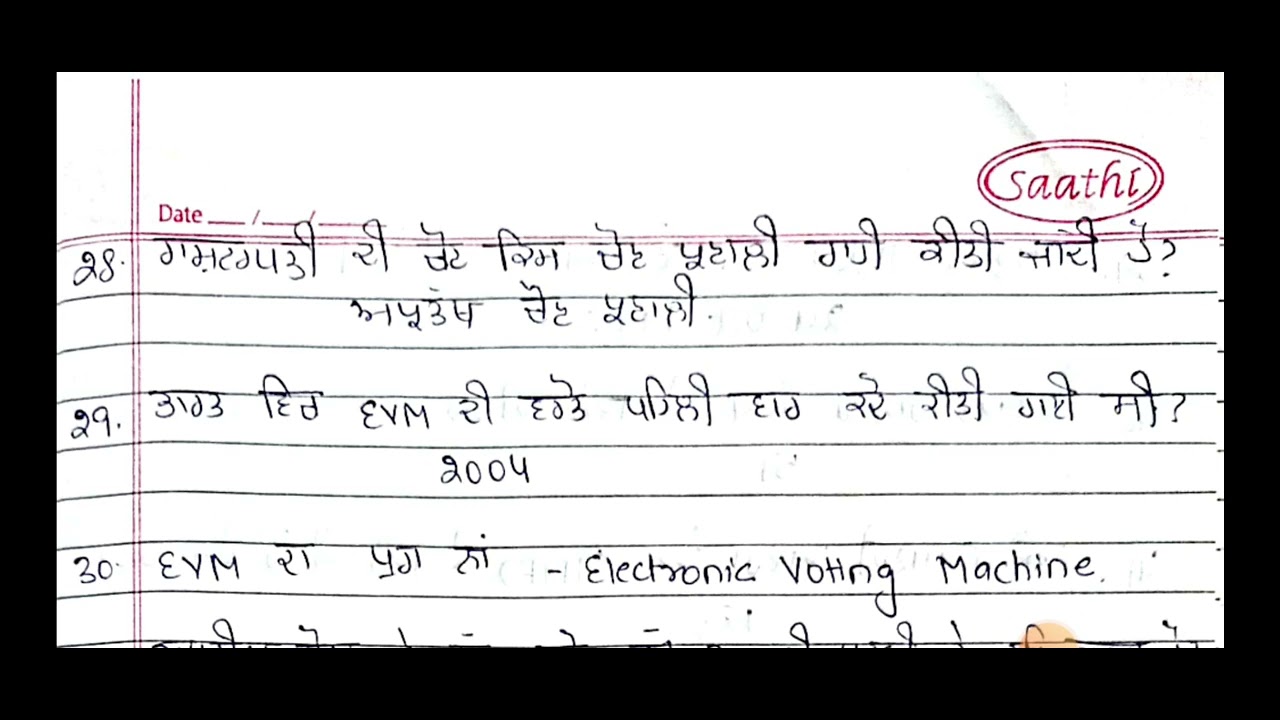 Saathi
Date __ / __ / __
28. ਰਾਸ਼ਟਰਪਤੀ ਦੀ ਚੋਣ ਕਿਸ ਚੋਣ ਪ੍ਰਣਾਲੀ ਰਾਹੀ ਕੀਤੀ ਜਾਂਦੀ ਹੈ?
ਅਪ੍ਰਤੱਖ ਚੋਣ ਪ੍ਰਣਾਲੀ.
29. ਭਾਰਤ ਵਿਚ EVM ਦੀ ਵਰਤੋ ਪਹਿਲੀ ਵਾਰ ਕਦੋ ਕੀਤੀ ਗਈ ਸੀ?
2004
30. EVM ਦਾ ਪੂਰਾ ਨਾਂ - Electronic Voting Machine.